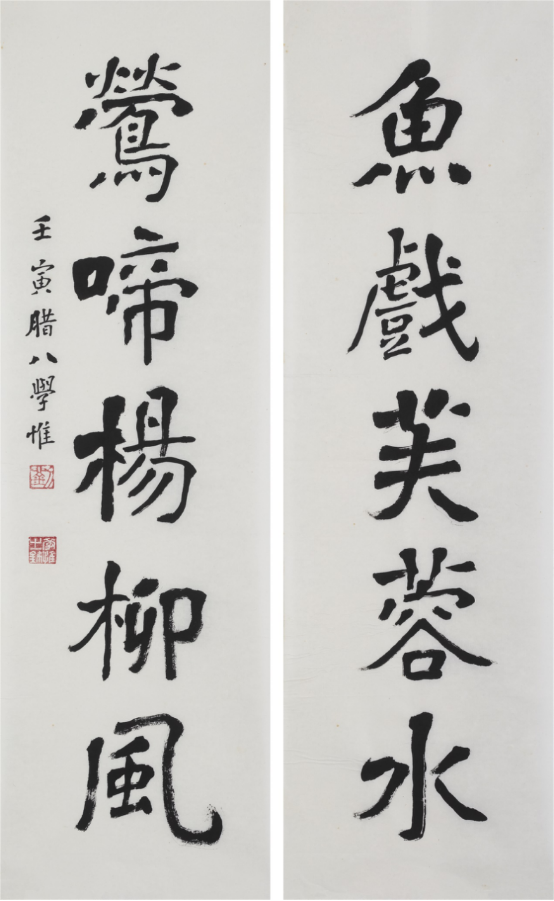 魚戲芙蓉水
鶯啼楊柳風
壬寅腊八學惟